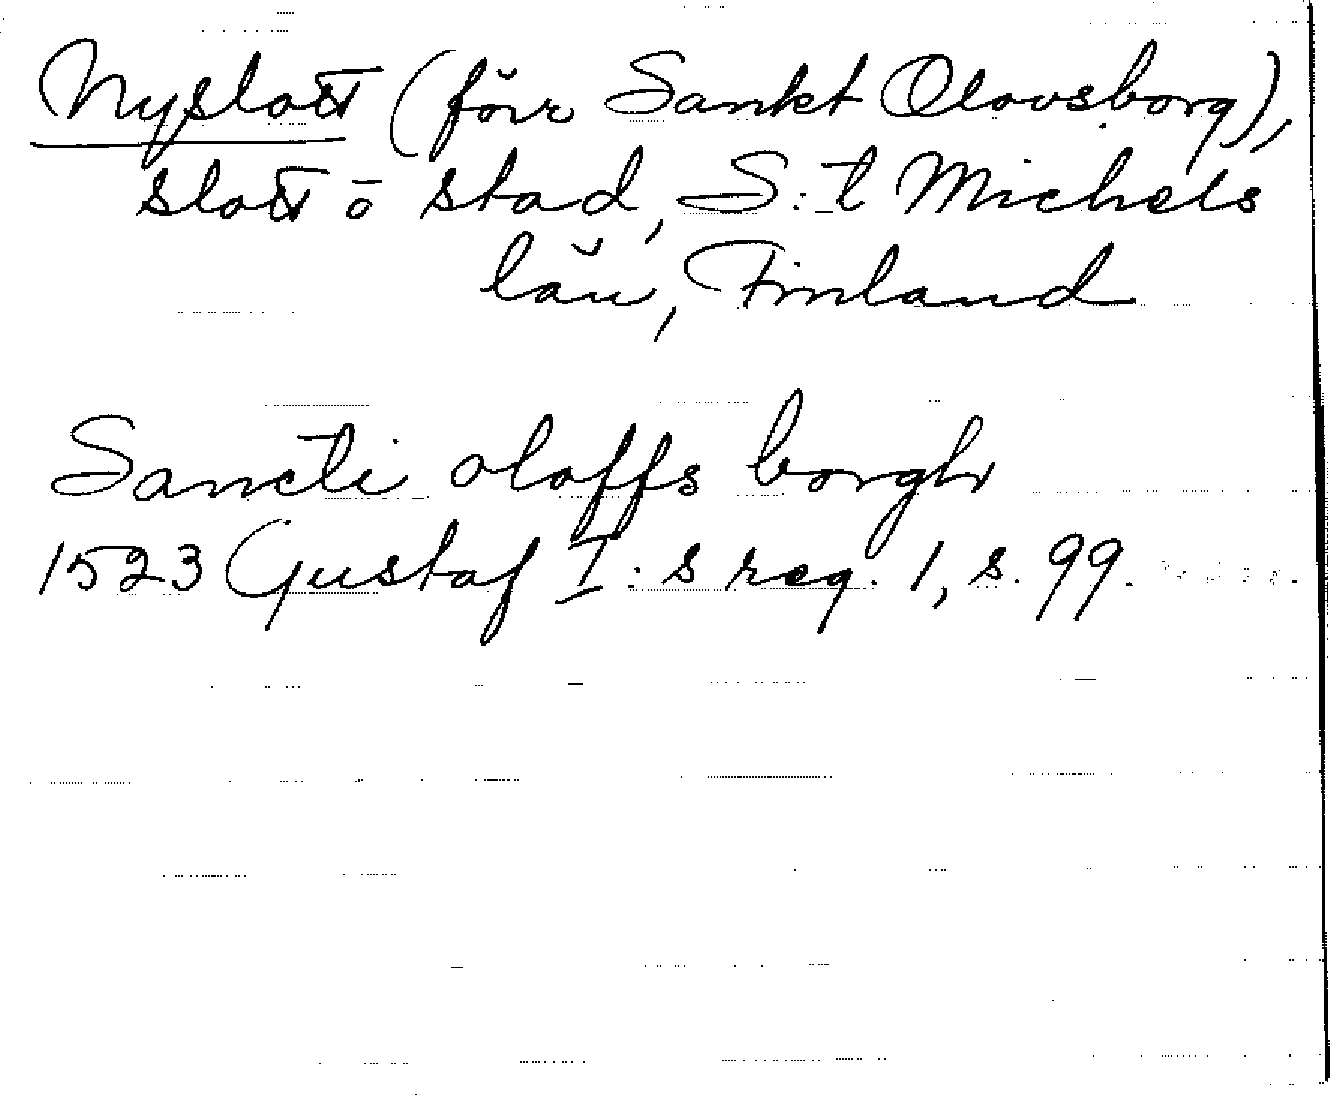 Nyslott (förr Sankt Olovsborg),
slott o stad, S:t Michels
län, Finland
Sancti oloffs borgh
1523 Gustaf I:s reg. 1, s. 99.